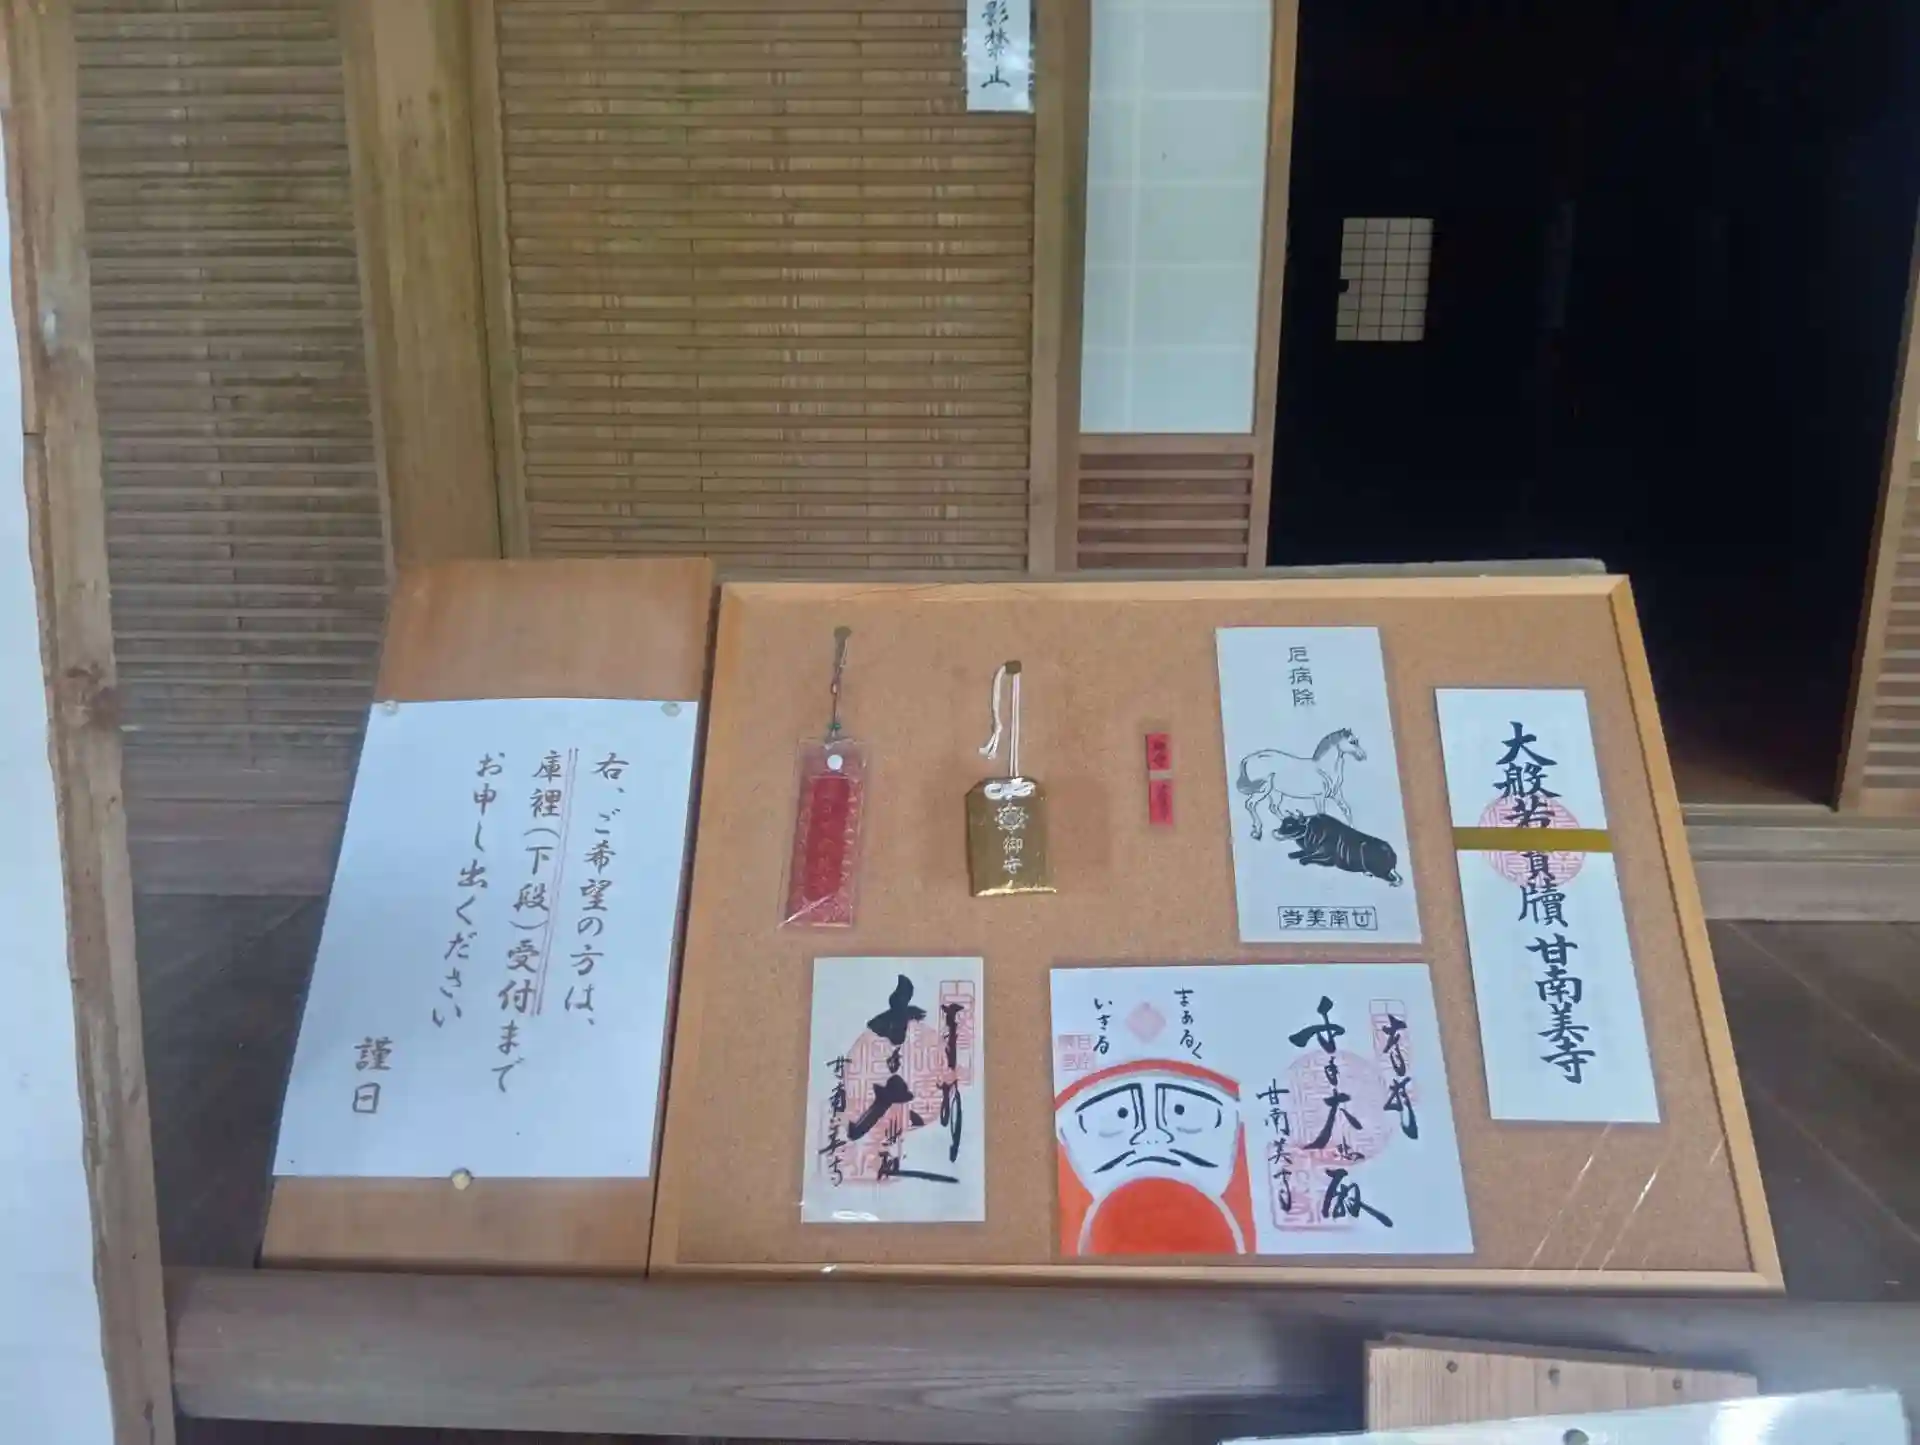 影禁止
右、ご希望の方は、
庫裡(下段)受付まで
お申し出ください
謹日
御守
厄病除
甘南美寺
大般若寳牘 甘南美寺
奉拝
千手大悲殿
甘南美寺
まあるく
いきる
奉拝
千手大悲殿
甘南美寺